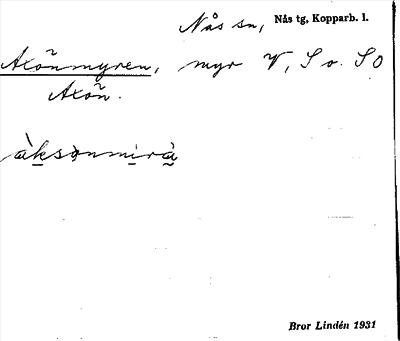 Nås sn, Nås tg, Kopparb. l.
Axönmyren, myr V, S o. SO
Axön.
àksonmirà
Bror Lindén 1931